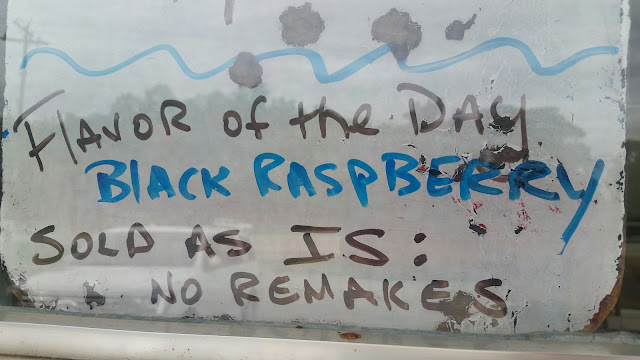 Flavor of the Day
Black Raspberry
Sold As Is:
No Remakes